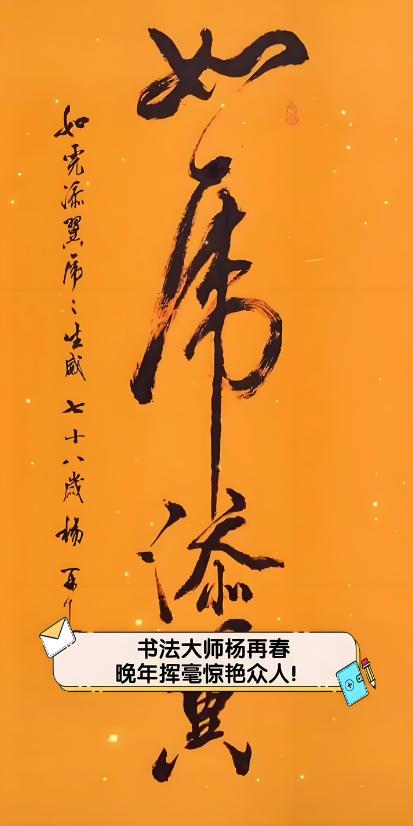 如虎添翼
如虎添翼虎〻生威七十八歲楊再
书法大师杨再春
晚年挥毫惊艳众人!